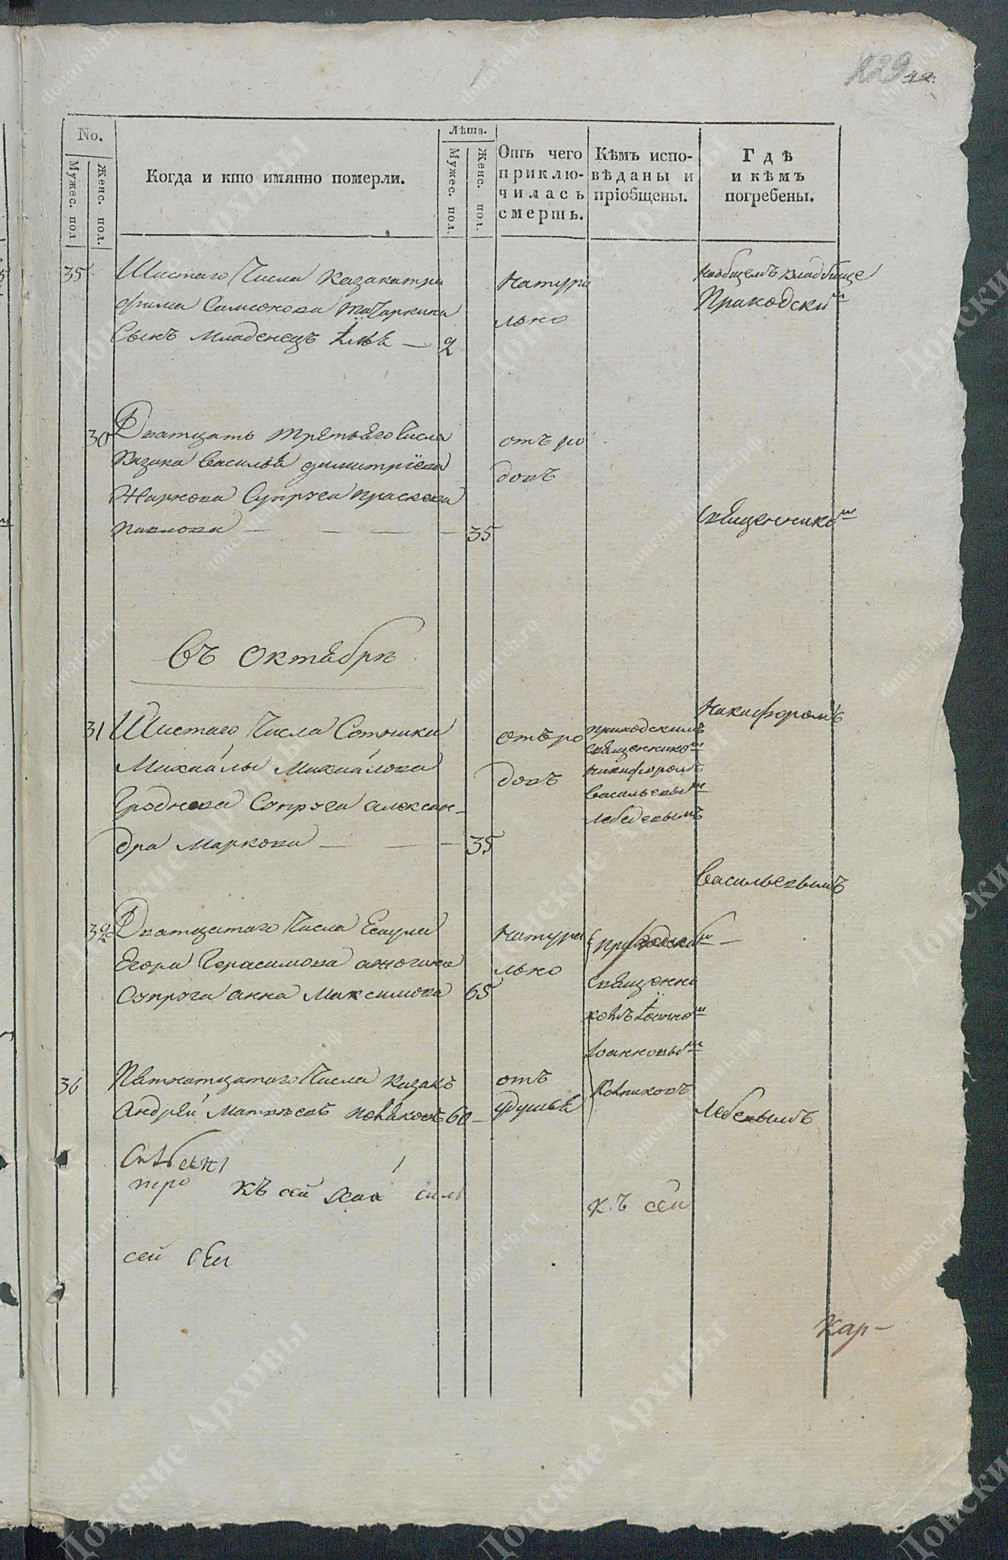 129
No.
Мужес. пол
Женс. пол.
Когда и кто имянно померли.
Лѣта.
Мужес. пол.
Женс. пол.
Отъ чего приклю-
чилась
смерть.
Кѣмъ испо-
вѣданы и
пріобщены.
Гдѣ
и кѣмъ
погребены.
35
Шистаго Числа казака три
фима Симеонова
Сынъ младенецъ — 2
натура
льно
наобщемъ кладбище
Приходским
30
Дватцать третьяго Числа
казака василья димитріева
Жаркова Супруга праскева
павлова — — — — 35
отъ ро
довъ
священником
въ октябрѣ
31
Шистаго Числа Сотника
Михайлы Михайлова
Гроднова Супруга алексан-
дра Маркова — — — 35
отъ ро
довъ
приходскимъ
священником
никифоромъ
васильевым
лебедевымъ
никифоромъ
васильевымъ
32
Дватцатаго Числа Есаула
Егора Герасимова
Супруга анна Максимова 65
натура
льно
приходским
священни
комъ Іоанном
Іоанновым
36
Пятнатцатаго Числа казакъ
Андрей Матвѣевъ новаковъ 60
отъ
удушья
лебевымъ
перо
къ сей
сей
къ сей
Кар-